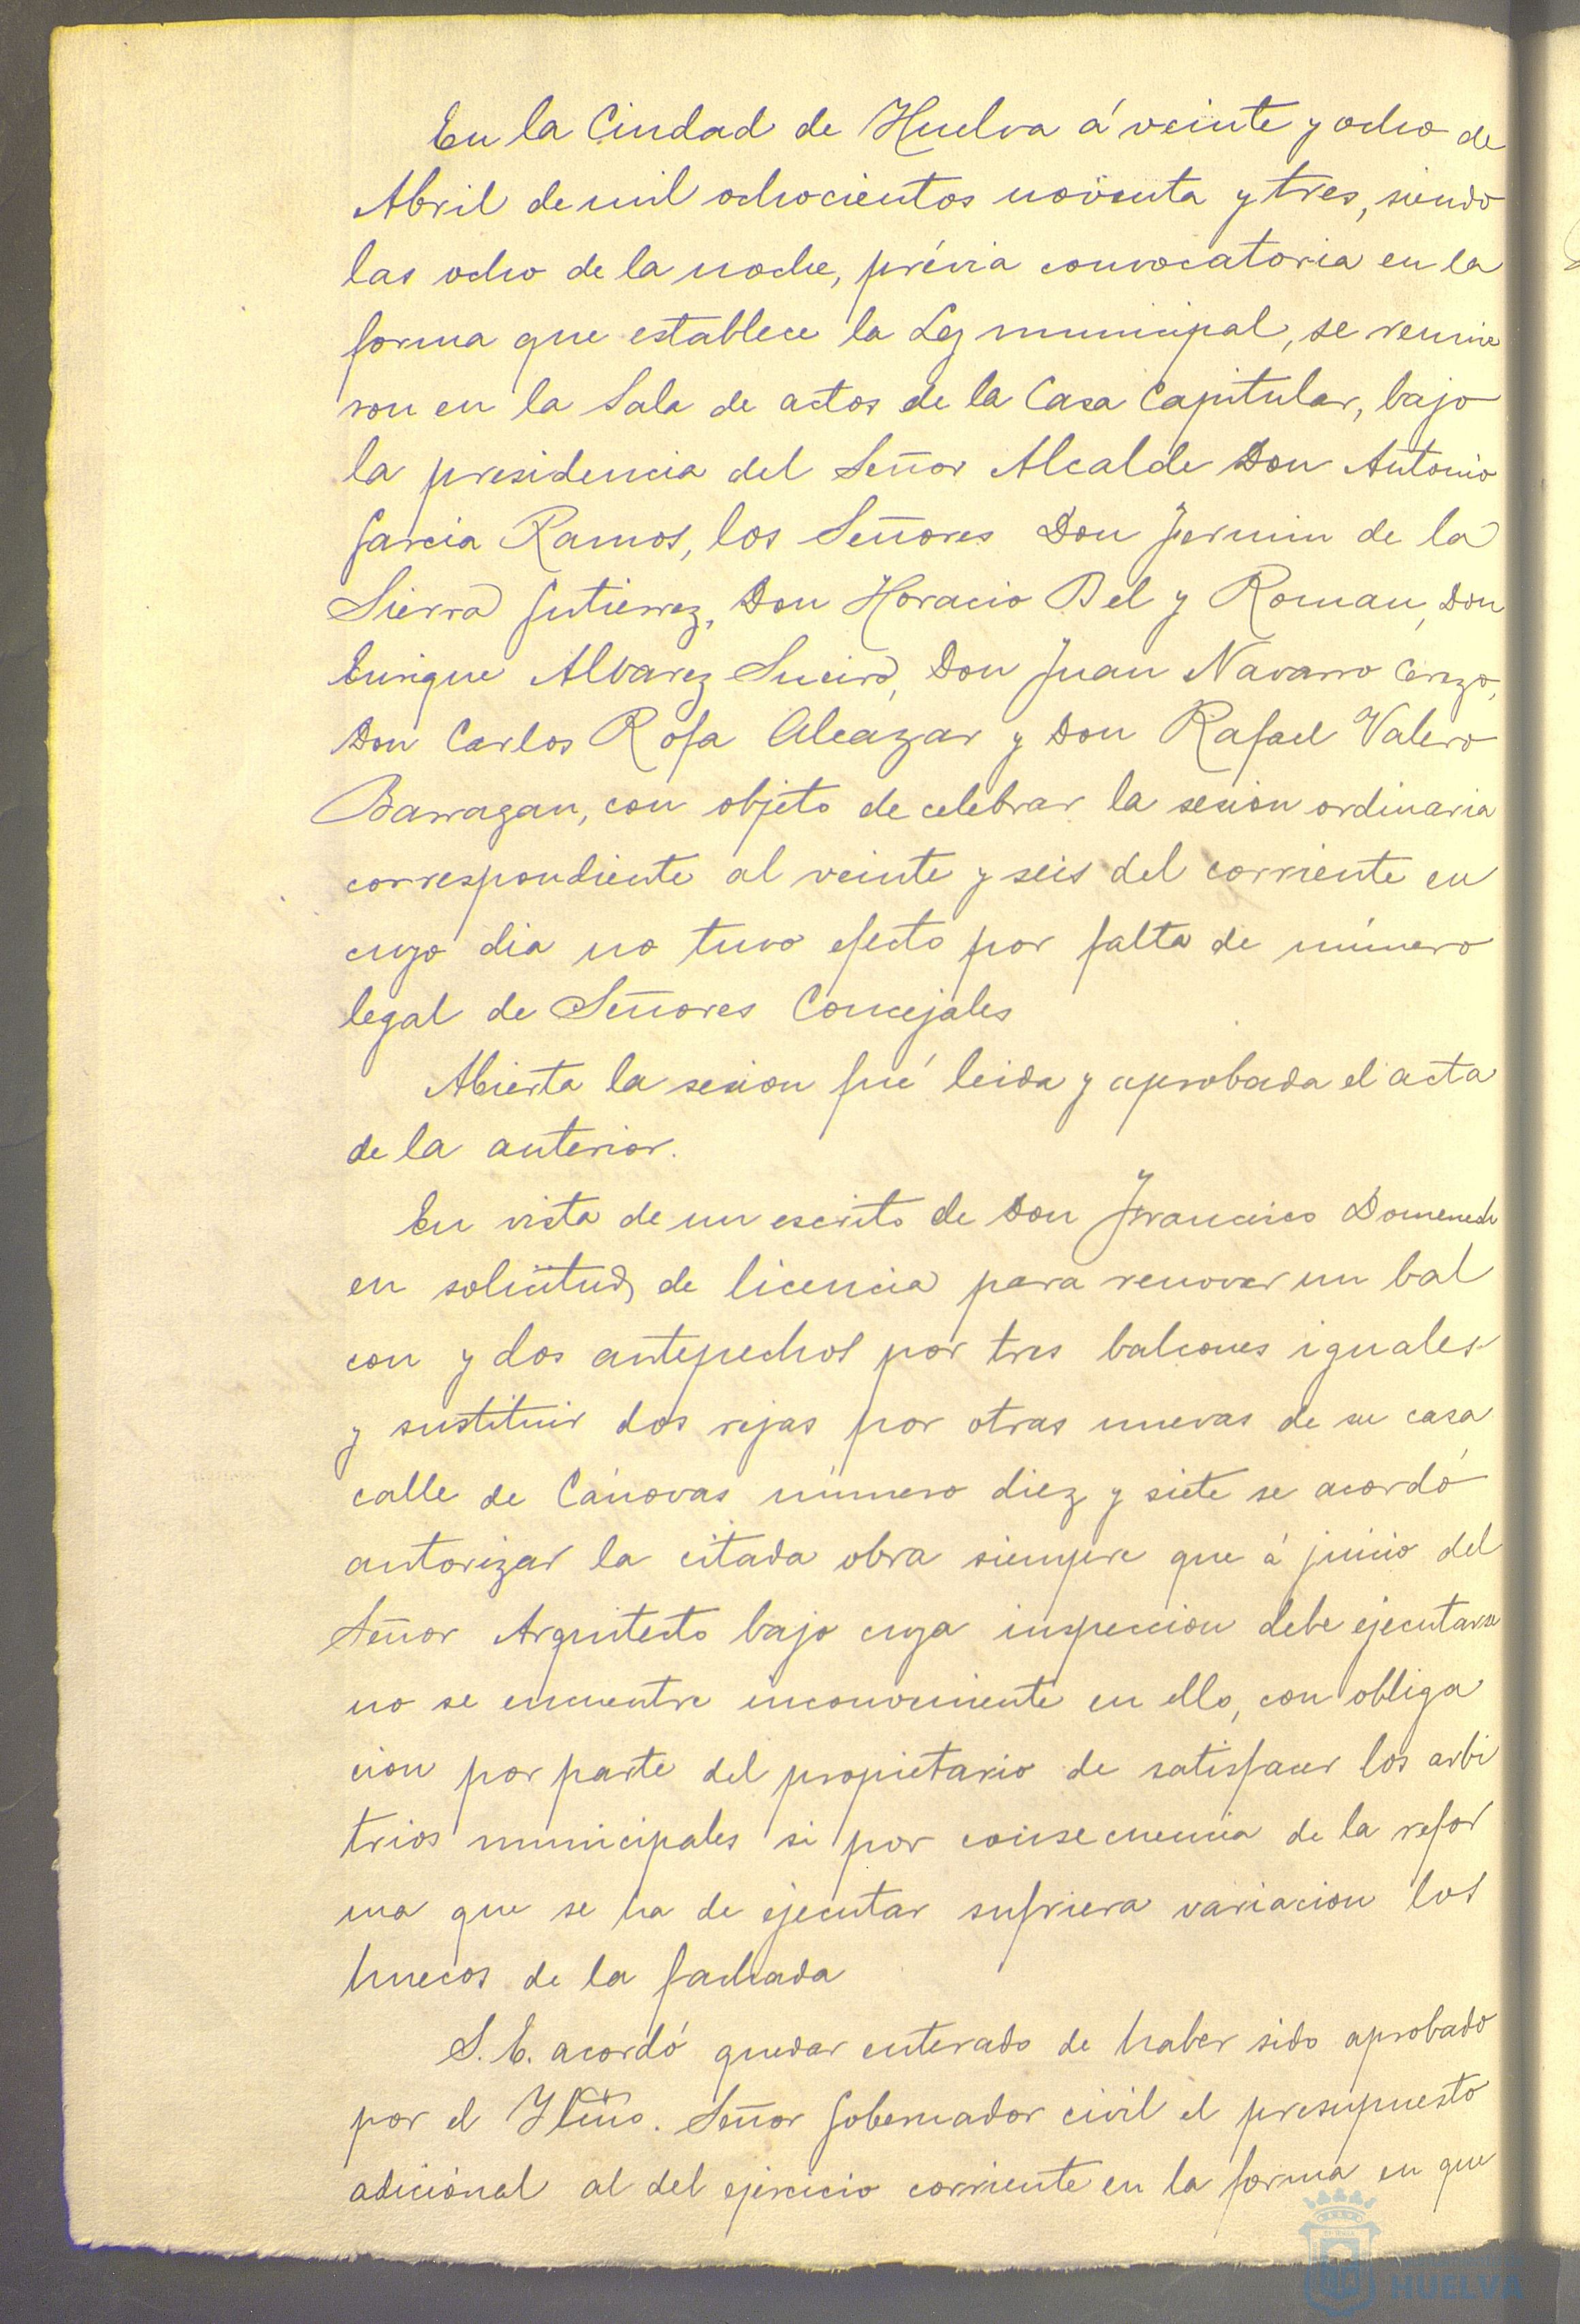 En la Ciudad de Huelva á veinte y ocho de
Abril de mil ochocientos noventa y tres, siendo
las ocho de la noche, prévia convocatoria en la
forma que establece la Ley municipal, se reunie
ron en la Sala de actos de la Casa Capitular, bajo
la presidencia del Señor Alcalde Don Antonio
Garcia Ramos, los Señores Don Fermin de la
Sierra Gutierrez, Don Horacio Bel y Roman, Don
Enrique Alvarez Sueiro, Don Juan Navarro Cerezo,
Don Carlos Rofa Alcazar y Don Rafael Valero
Barragan, con objeto de celebrar la sesion ordinaria
correspondiente al veinte y seis del corriente en
cuyo dia no tuvo efecto por falta de número
legal de Señores Concejales
Abierta la sesion fué leida y aprobada el acta
de la anterior.
En vista de un escrito de Don Francisco Domenech
en solicitud de licencia para renovar un bal
con y dos antepechos por tres balcones iguales
y sustituir dos rejas por otras nuevas de su casa
calle de Cánovas número diez y siete se acordó
autorizar la citada obra siempre que á juicio del
Señor Arquitecto bajo cuya inspeccion debe ejecutarse
no se encuentre inconveniente en ello, con obliga
cion por parte del propietario de satisfacer los arbi
trios municipales si por consecuencia de la refor
ma que se ha de ejecutar sufriera variacion los
huecos de la fachada
S. E. acordó quedar enterado de haber sido aprobado
por el Yltmo. Señor Gobernador civil el presupuesto
adicional al del ejercicio corriente en la forma en que
HUELVA